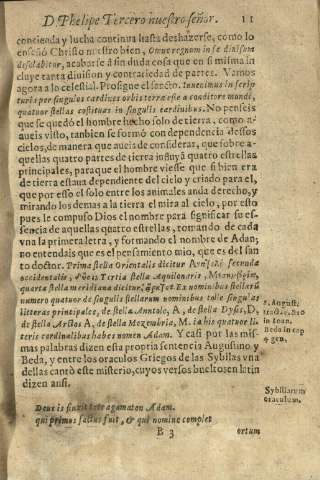 D. Phelipe Tercero nuestro señor. 11
concienda y lucha continua hasta deshazerse, como lo
enseñó Christo nuestro bien, Omne regnum in se diuisum
desolabitur, acabarse à sin duda cosa que en si misma in
cluye tanta diuision y contrariedad de partes. Vamos
agora a lo celestial. Prosigue el sancto. Inuenimus in scrip
turis per singulos cardines orbis terræ esse a conditore mundi,
quatuor stellas constitutas in singulis cardinibus. No penseis
que se quedò el hombre hecho solo de tierra, como a-
aueis visto, tambien se formó con dependencia dessos
cielos, de manera que aueis de considerar, que sobre a-
quellas quatro partes de tierra influyã quatro estrellas
principales, paraque el hombre viesse que si bien era
de tierra estaua dependiente del cielo y criado para el,
que por esso el solo entre los animales anda derecho, y
mirando los demas a la tierra el mira al cielo, por esto
pues le compuso Dios el nombre para significar su es-
sencia de aquellas quatro estrellas, tomando de cada
vna la primera letra, y formando el nombre de Adan;
no entendais que es el pensamiento mio, que es del san
to doctor. Prima stella Orientalis dicitur secunda
occidentalis, Tertia stella Aquilonaris,
quarta stella meridiana dicitur, Ex nominibus stellarũ
numero quatuor de singulis stellarum nominibus tolle singulas
litteras principales, de stella Anatole, A, de stella Dysis, D,
de stella Arctos A, de stella Mezembria, M. in his quatuor lit
teris cardinalibus habes nomen Adam. Y casi por las mis
mas palabras dizen esta propria sentencia Augustino y
Beda, y entre los oraculos Griegos de las Sybilas vna
dellas cantò este misterio, cuyos versos bueltos en latin
dizen ansi.
s. Augusti.
in Ioan.
Beda in cap
4 gen.
Sybillarum
oraculum.
Deus is finxit tetragamaton Adam.
qui primus factus fuit, & qui nomine complet
B 3 ortum